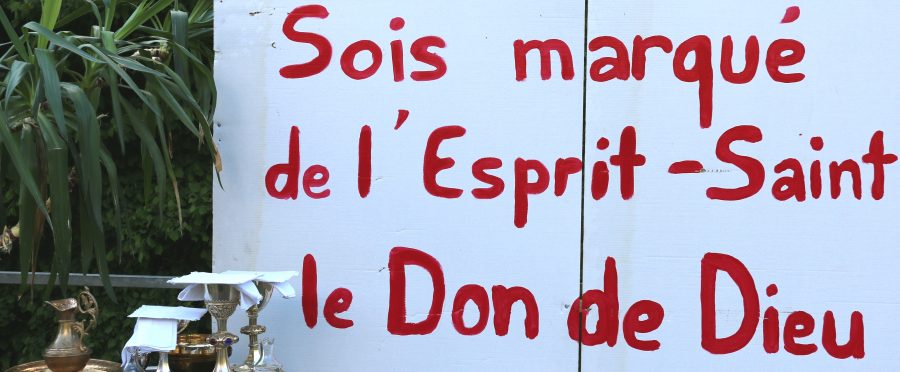 Sois marqué
de l'Esprit-Saint
le Don de Dieu